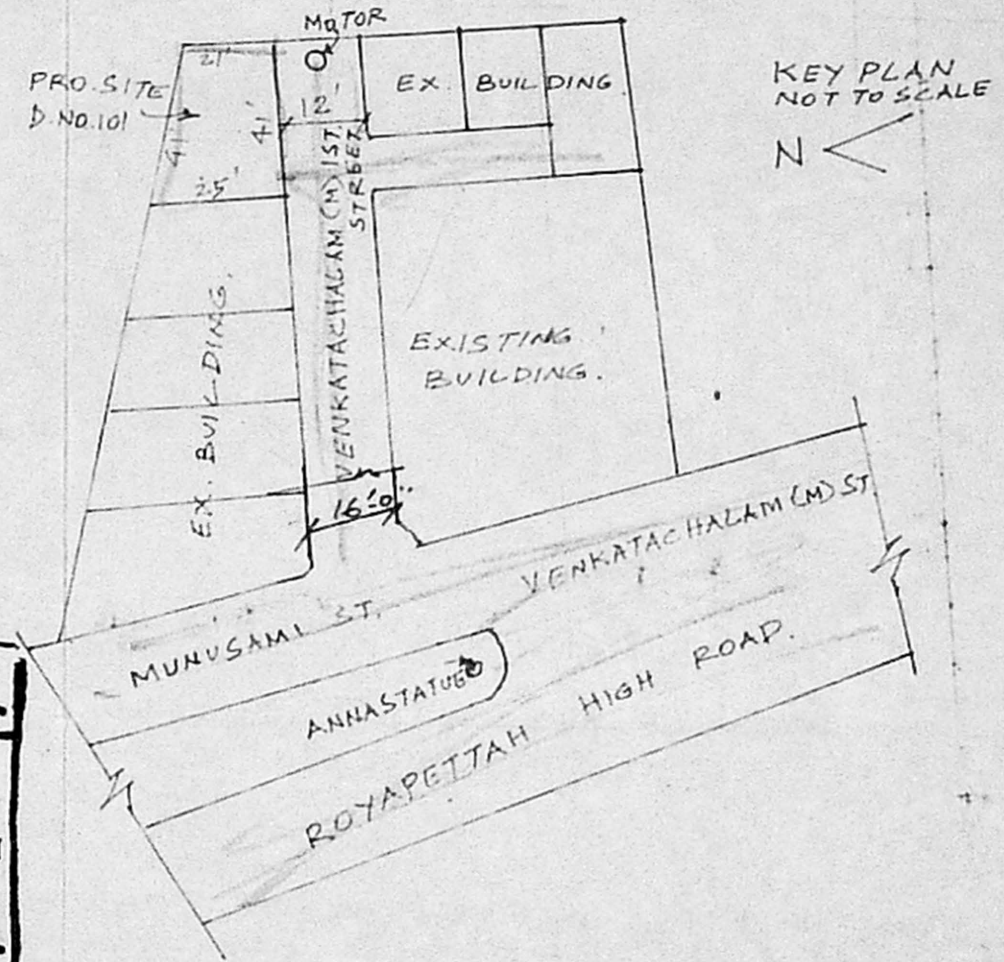 MOTOR
PRO. SITE
D.NO.101
21'
41'
41'
25'
12'
EX. BUILDING
KEY PLAN
NOT TO SCALE
N
VENKATACHALAM (M) IST.
STREET
EX. BUILDING.
EXISTING
BUILDING.
16'-0"
MUNUSAMI ST.
VENKATACHALAM (M) ST.
ANNASTATUE
ROYAPETTAH HIGH ROAD.